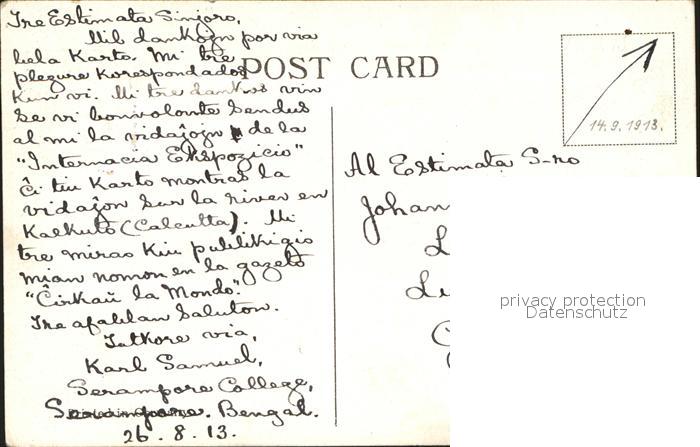 Tre Estimata Sinjoro,
Mil dankojn por via
bela Karto. Mi tre
plezure Korespondados
Kun vi. Mi tre dankus vin
se vi bonvolonte sendus
al mi la vidaĵojn de la
"Internacia Ekspozicio"
Ĉi tiu Karto montras la
vidaĵon sur la river en
Kalkuto (Calcutta). Mi
tre miras Kiu publikigis
mian nomon en la gazeto
"Ĉirkaŭ la Mondo".
Tre afablan Saluton.
Tutkore via,
Karl Samuel,
Serampore College,
Serampore. Bengal.
26. 8. 13.
POST CARD
14.9.1913.
Al Estimata S-ro
Johan
L
L
privacy protection
Datenschutz